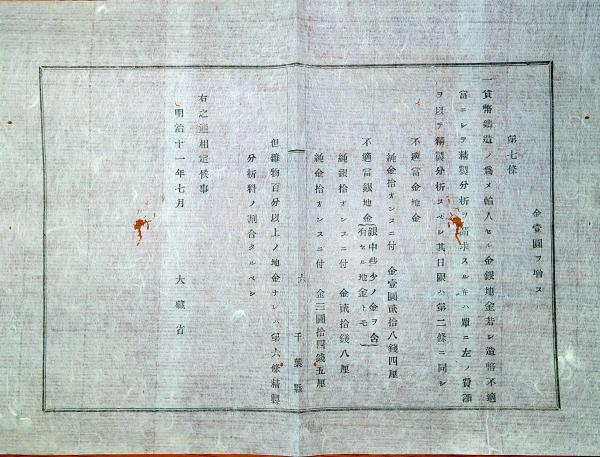 金壹圓ヲ増ス
第七條
一貨幣鑄造ノ爲メ輸入セル金銀地金若シ造幣不適
當ニシテ精製分析ヲ請求スルキハ單ニ左ノ費額
ヲ以テ精製分析スベシ其日限ハ第二條ニ同シ
不適當金地金
純金拾オンスニ付 金壹圓貳拾八錢四厘
不適當銀地金(銀中些少ノ金ヲ含有セル地金トモ)
純銀拾オンスニ付 金貳拾錢八厘
純金拾オンスニ付 金三圓拾四錢五厘
六 千葉縣
但雜物百分以上ノ地金ナレハ第六條精製
分析料ノ割合タルベシ
右之通相定候事
明治十一年七月 大藏省